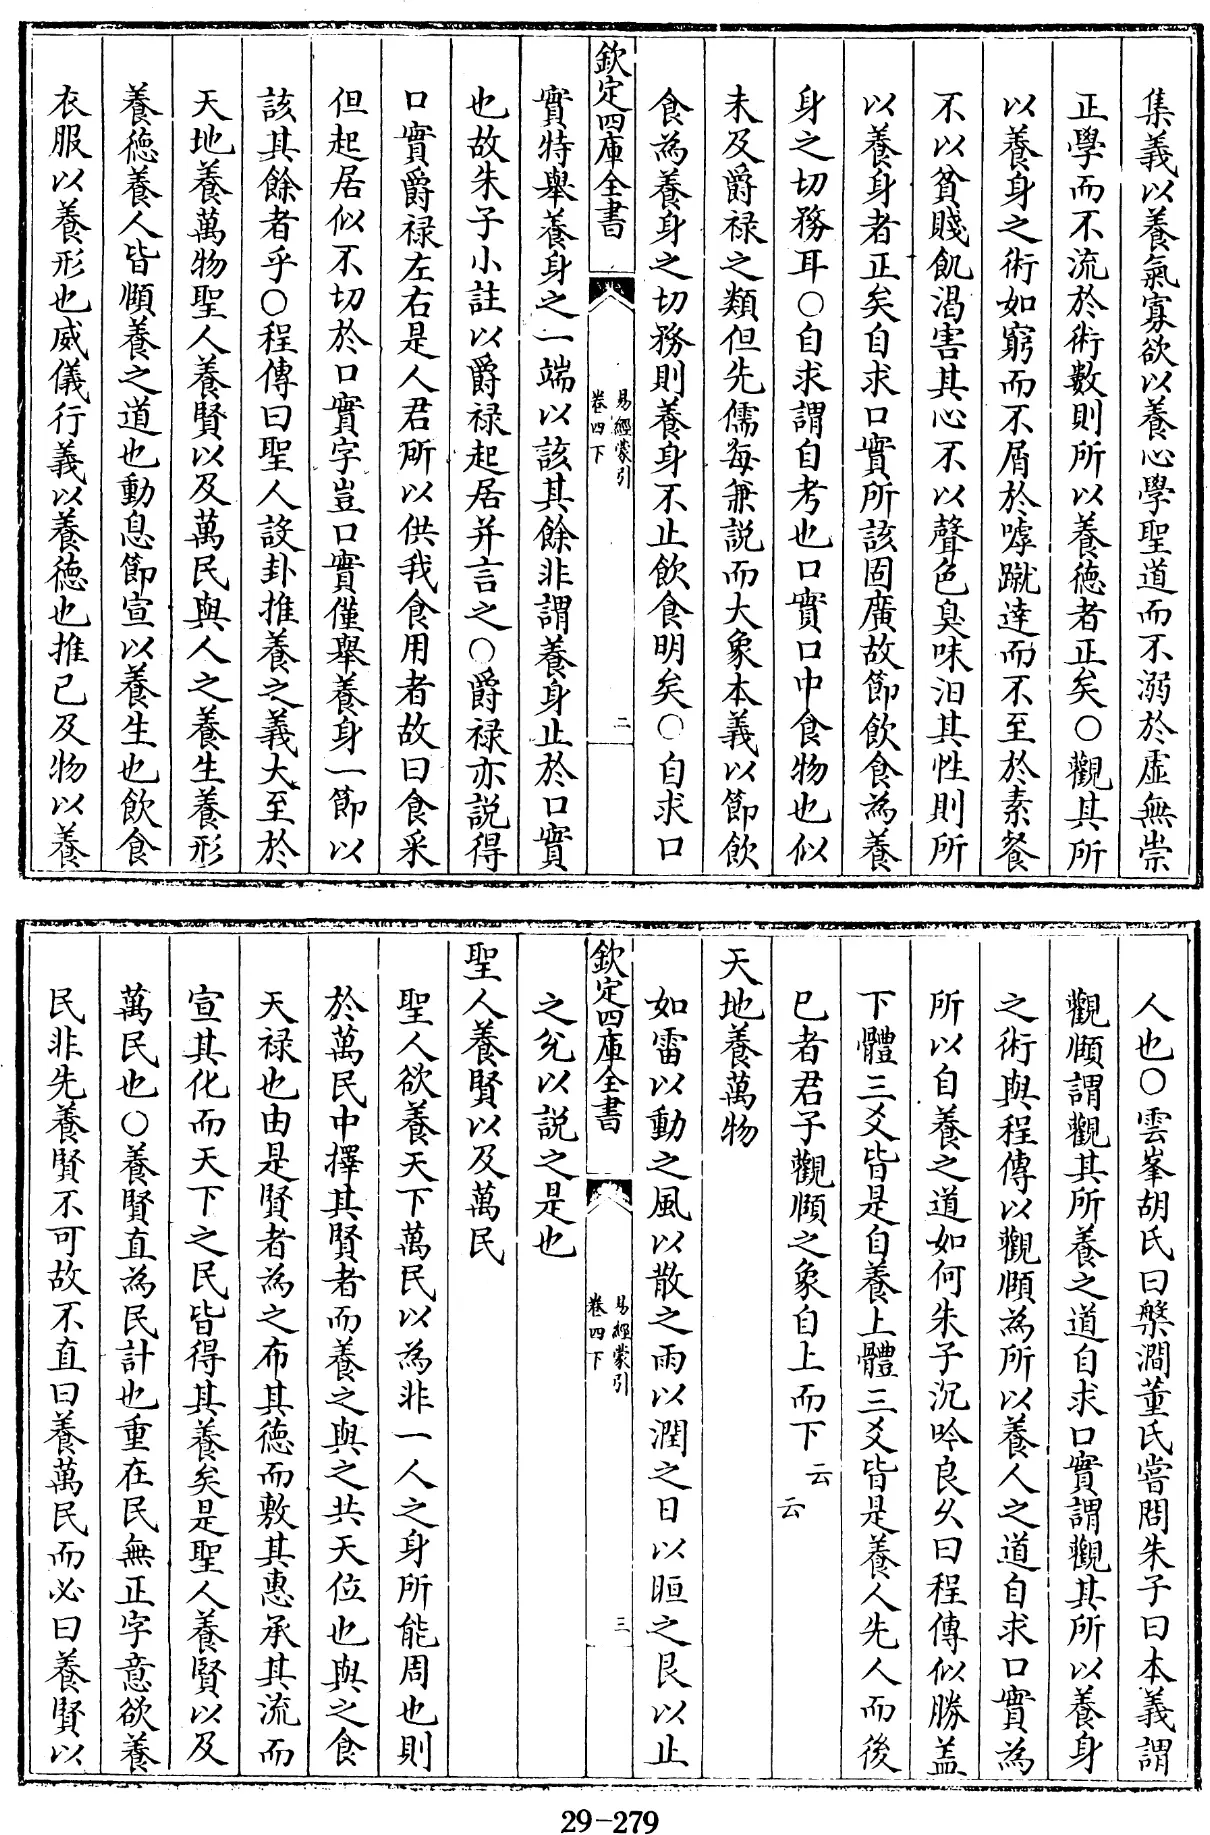 集義以養氣寡欲以養心學聖道而不溺於虚無崇
正學而不流於術數則所以養徳者正矣○觀其所
以養身之術如窮而不屑於嘑蹴達而不至於素餐
不以貧賤飢渴害其心不以聲色臭味汨其性則所
以養身者正矣自求口實所該固廣故節飲食為養
身之切務耳○自求謂自考也口實口中食物也似
未及爵禄之類但先儒每兼説而大象本義以節飲
食為養身之切務則養身不止飲食明矣○自求口
欽定四庫全書
易經蒙引
卷四下
二
實特舉養身之一端以該其餘非謂養身止於口實
也故朱子小註以爵禄起居并言之○爵禄亦説得
口實爵禄左右是人君所以供我食用者故曰食采
但起居似不切於口實字豈口實僅舉養身一節以
該其餘者乎○程傳曰聖人設卦推養之義大至於
天地養萬物聖人養賢以及萬民與人之養生養形
養徳養人皆頤養之道也動息節宣以養生也飲食
衣服以養形也威儀行義以養徳也推己及物以養
人也○雲峯胡氏曰槃澗董氏嘗問朱子曰本義謂
觀頤謂觀其所養之道自求口實謂觀其所以養身
之術與程傳以觀頤為所以養人之道自求口實為
所以自養之道如何朱子沉吟良乆曰程傳似勝盖
下體三爻皆是自養上體三爻皆是養人先人而後
已者君子觀頤之象自上而下云云
天地養萬物
如雷以動之風以散之雨以潤之日以晅之艮以止
欽定四庫全書
易經蒙引
卷四下
三
之兊以説之是也
聖人養賢以及萬民
聖人欲養天下萬民以為非一人之身所能周也則
於萬民中擇其賢者而養之與之共天位也與之食
天禄也由是賢者為之布其徳而敷其惠承其流而
宣其化而天下之民皆得其養矣是聖人養賢以及
萬民也○養賢直為民計也重在民無正字意欲養
民非先養賢不可故不直曰養萬民而必曰養賢以
29-279